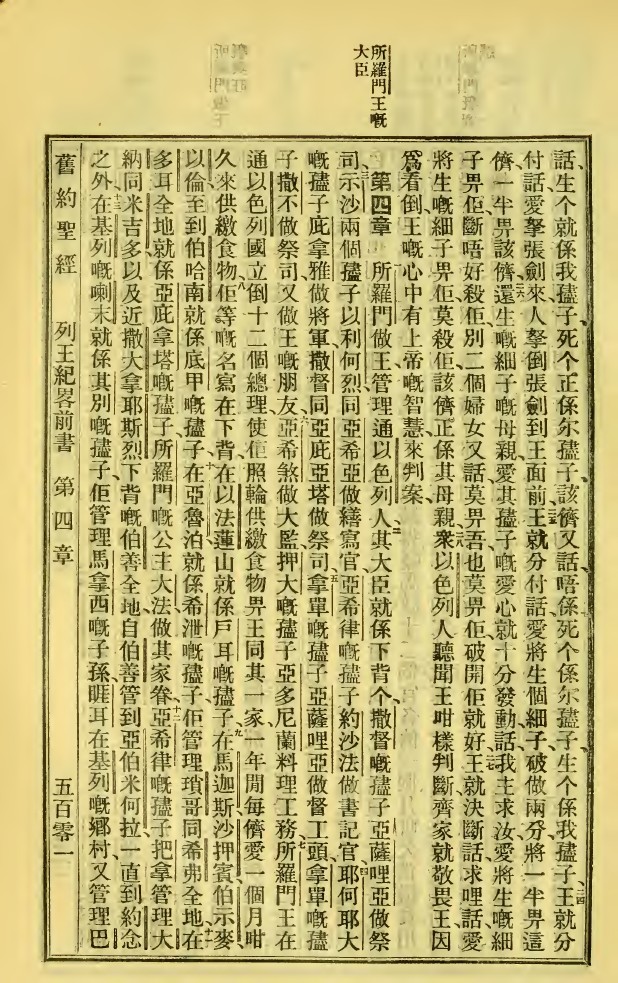 所羅門王嘅
大臣
話、生个就係我𡥧子、死个正係尔𡥧子、該儕又話、唔係、死个係尔𡥧子、生个係我𡥧子、王就分
付話、愛拏張劍來、人拏倒張劍到王面前、王就分付話、愛將生個細子、破做兩分、將一半畀這
儕、一半畀該儕、還生嘅細子嘅母親、愛其𡥧子嘅愛心、就十分發動、話、我主求汝愛將生嘅細
子畀佢、斷唔好殺佢、別二個婦女又話、莫畀吾、也莫畀佢、破開佢就好、王就決斷話、求哩話愛
將生嘅細子畀佢、莫殺佢、該儕正係其母親、衆以色列人聽聞王咁樣判斷、齊家就敬畏王、因
爲看倒王嘅心中有上帝嘅智慧、來判案、
第四章 所羅門做王管理通以色列人、其大臣就係下背个、撒督嘅𡥧子亞薩哩亞做祭
司、示沙兩個𡥧子以利何烈同亞希亞做繕寫官、亞希律嘅𡥧子約沙法做書記官、耶何耶大
嘅𡥧子庇拿雅做將軍、撒督同亞庇亞塔做祭司、拿單嘅𡥧子亞薩哩亞做督工頭、拿單嘅𡥧
子撒不做祭司、又做王嘅朋友、亞希煞做大監、押大嘅𡥧子亞多尼蘭料理工務、所羅門王在
通以色列國立倒十二個總理、使佢照輪供繳食物畀王同其一家、一年閒每儕愛一個月咁
久來供繳食物、佢等嘅名寫在下背、在以法蓮山就係戸耳嘅𡥧子、在馬迦斯沙押賓伯示麥
以倫至到伯哈南就係底甲嘅𡥧子、在亞魯泊就係希泄嘅𡥧子、佢管理瑣哥同希弗全地、在
多耳全地就係亞庇拿塔嘅𡥧子、所羅門嘅公主大法做其家眷、亞希律嘅𡥧子把拿管理大
納同米吉多以及近撒大拿耶斯烈下背嘅伯善全地、自伯善管到亞伯米何拉、一直到約念
之外、在基列嘅喇末就係其別嘅𡥧子、佢管理馬拿西嘅子孫睚耳在基列嘅鄉村、又管理巴
舊約聖經 列王紀畧前書 第四章 五百零一